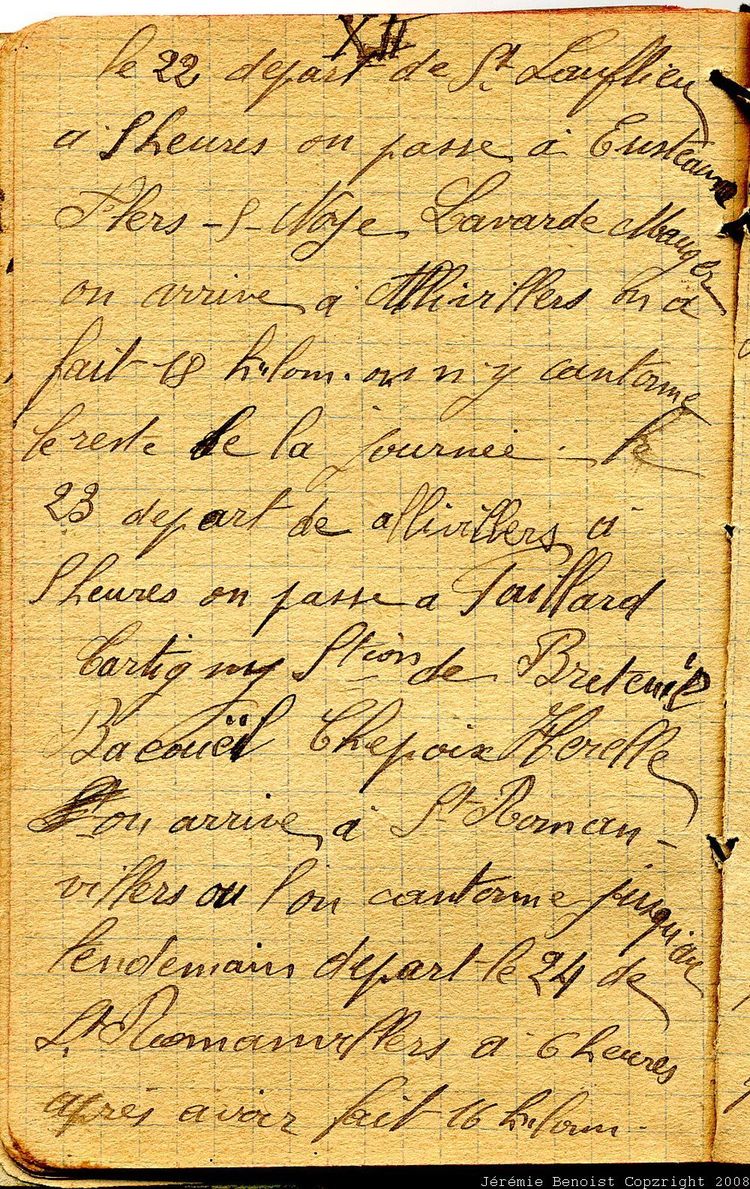 XII
le 22 depart de St Lauflieu
a 5 heures on passe a
Flers - S - Noye Lavarde Mauger
on arrive a Allivillers on a
fait 18 kilom. on n'y cantonne
le reste de la journeé . le
23 depart de allivillers a
5 heures on passe a Paillard
Cartigny Stion de Breteuil
Bacouël Chepoix Herelle
on arrive a St Roman-
villers ou l'on cantonne jusqu'au
lendemain depart le 24 de
St Romanvillers a 6 heures
aprés avoir fait 16 kilom.
Jérémie Benoist Copzright 2008